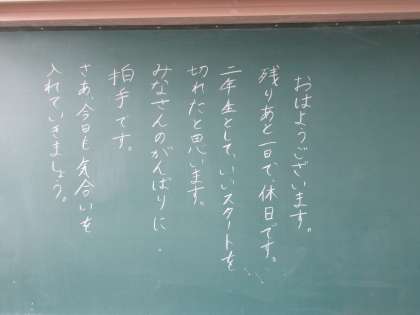 おはようございます。
残りあと一日で、休日です。
二年生として、いいスタートを
切れたと思います。
みなさんのがんばりに
拍手です。
さあ、今日も気合いを
入れていきましょう。